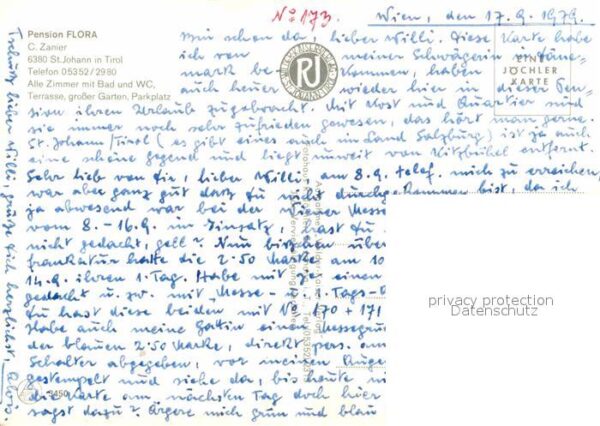 No 173.
Wien, den 17.9.1979.
Pension FLORA
C. Zanier
6380 St. Johann in Tirol
Telefon 05352/2980
Alle Zimmer mit Bad und WC,
Terrasse, großer Garten, Parkplatz
RJ
EINE
JÖCHLER
KARTE
Bin schon da, lieber Willi. Diese Karte habe
ich von meiner Schwägerin
mark bekommen, haben
auch heuer wieder hier in dieser Pen-
sion ihren Urlaub zugebracht. Mit Kost und Quartier sind
sie immer noch sehr zufrieden gewesen, das hört man gerne.
St. Johann/Tirol (es gibt eines auch im Land Salzburg) ist ja auch
eine schöne Gegend und liegt unweit von Kitzbühel entfernt.
Sehr lieb von Dir, lieber Willi, am 8.9. telef. mich zu erreichen,
war aber ganz gut daß Du nicht durchgekommen bist, da ich
ja abwesend war bei der Wiener Messe
vom 8.-16.9. im Einsatz, hast Du
nicht gedacht, gell? Nun bißchen über
frankatur hatte die 2.50 Marke am 10
14.9. ihren 1. Tag. Habe mit je einen
gedacht u. zw. mit Messe- 1. Tags-
Du hast diese beiden mit No 170 + 171
Habe auch meine Gattin einen Messegru
der blauen 2.50 Marke, direkt pers. am
Schalter abgegeben, vor meinen Auge
gestempelt und siehe da, bis heute ni
die Karte am nächsten Tag doch hier
sagst dazu? Ärgere mich grün und blau
Tschüß lieber Willi, grüße Dich herzlichst, Alois.
3450
privacy protection
Datenschutz